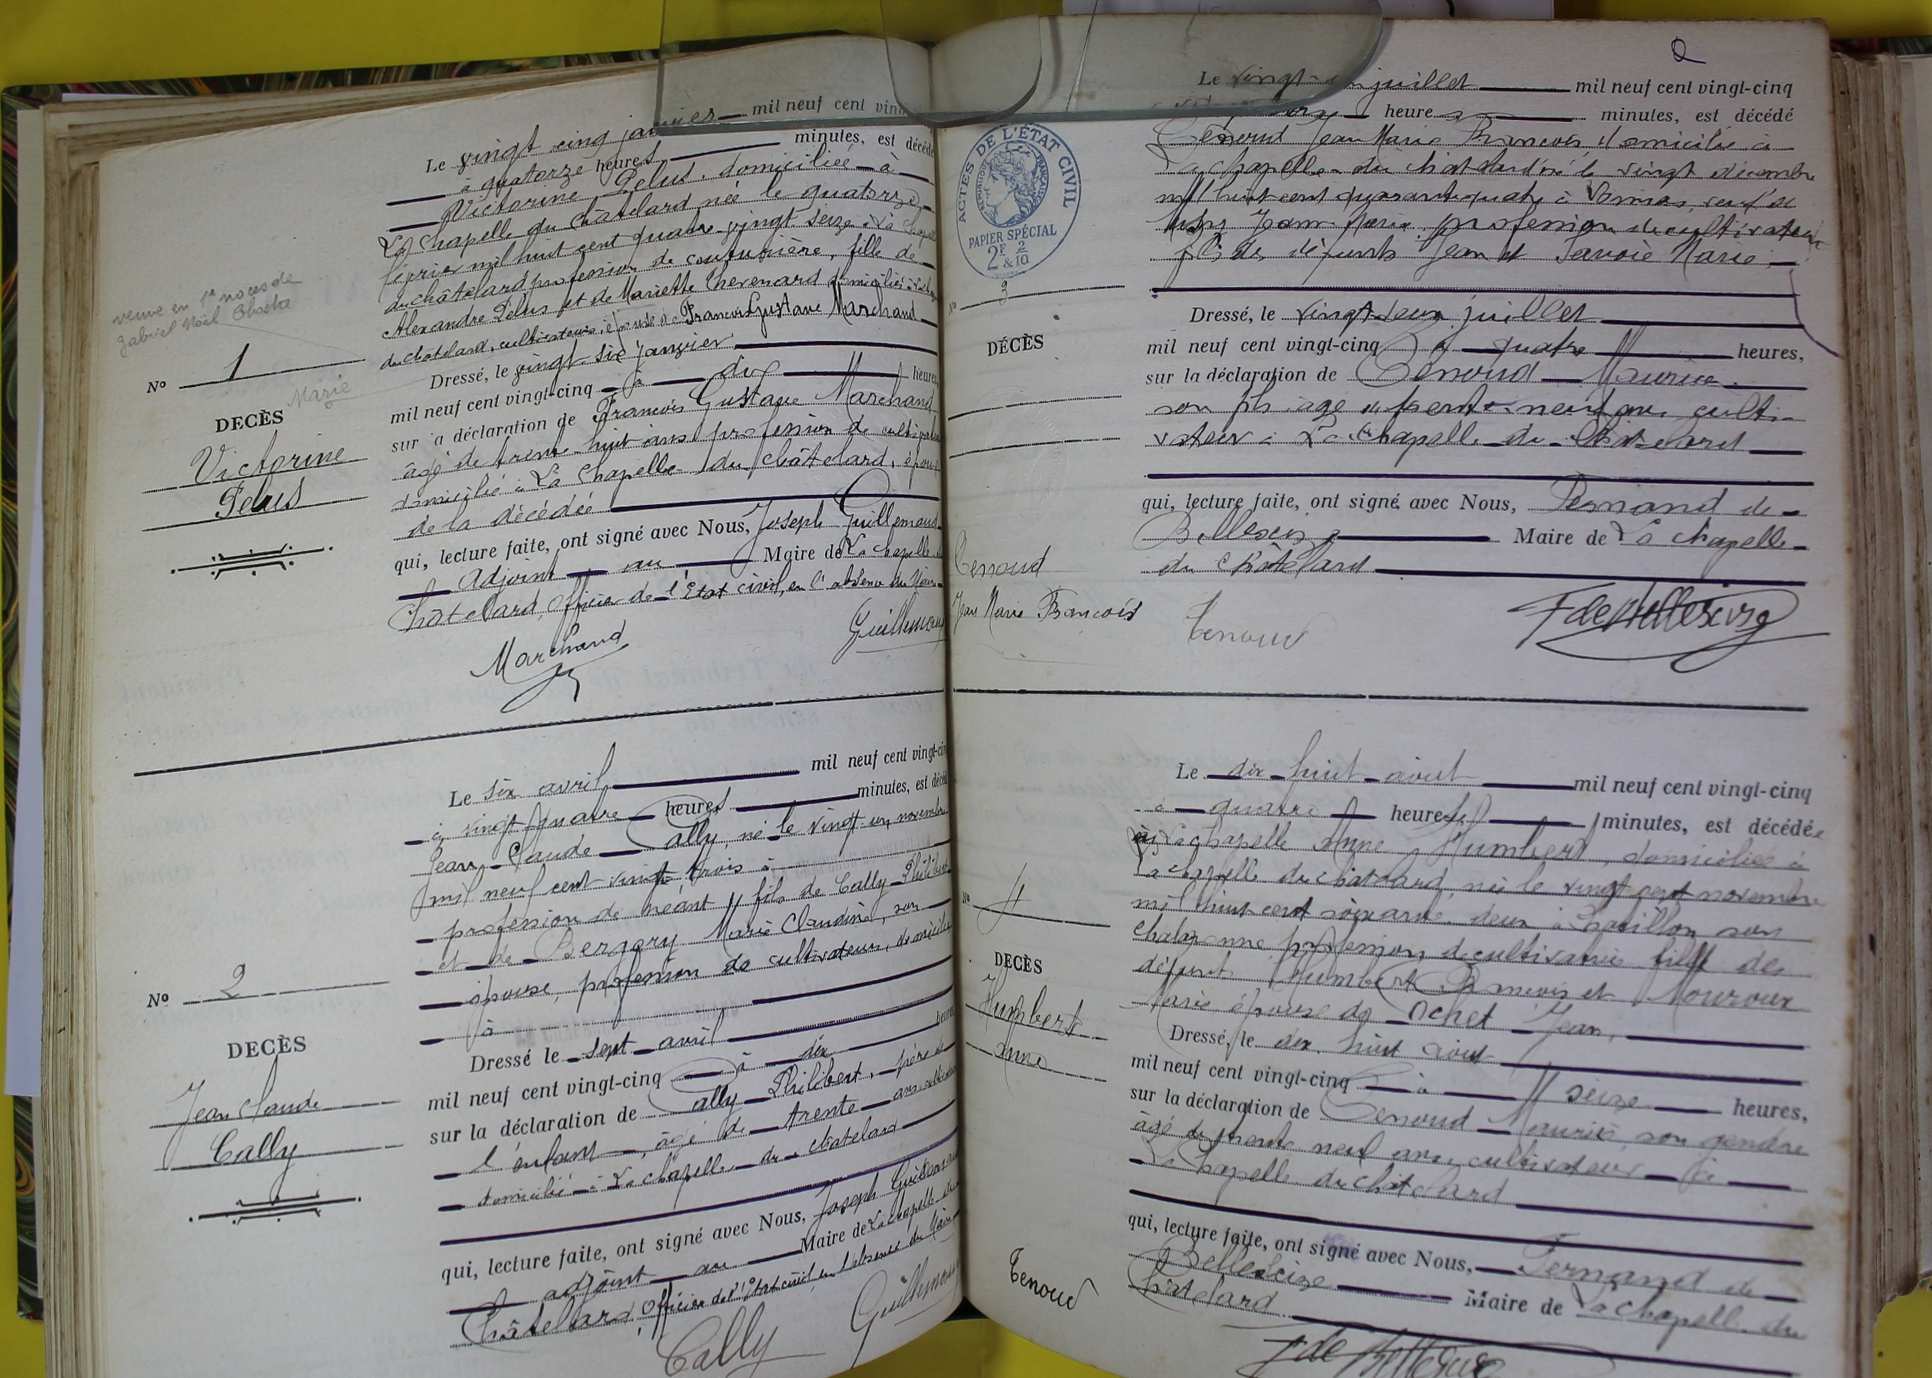 Le vingt cinq janvier mil neuf cent
à quatorze heures minutes, est décédé
Victorine Pelus, domiciliée à
La chapelle du châtelard née le quatorze
février mil huit cent quatre vingt seize à La
du châtelard profession de couturière, fille de
Alexandre Pelus et de Mariette Thevenard domiciliés à
du châtelard, cultivateurs, épouse de François Gustave Marchand
veuve en 1e noces de
gabriel Noël
No 1
Marie
DECÈS
Victorine
Pelus
Dressé, le vingt six janvier
mil neuf cent vingt-cinq à dix heures
sur la déclaration de François Gustave Marchand
âgé de trente huit ans profession de
domicilié à La Chapelle du châtelard, époux
de la décédée
qui, lecture faite, ont signé avec Nous, Joseph
Adjoint au Maire de La chapelle
Châtelard, officier de l'Etat civil, en l'absence du Maire
Marchand
Le six avril mil neuf cent vingt-
à vingt quatre heures minutes, est
Jean Claude Cally, né le vingt un novembre
mil neuf cent vingt trois à
profession de néant fils de Cally
et de Bergery Marie Claudine, son
épouse, profession de cultivateurs,
à
No 2
DECÈS
Jean Claude
Cally
Dressé le sept avril
mil neuf cent vingt-cinq à dix
sur la déclaration de Cally Philibert, père de
l'enfant, âgé de trente ans
domicilié à La chapelle du châtelard
qui, lecture faite, ont signé avec Nous, Joseph
adjoint au Maire de La chapelle du
Châtelard, officier de l'état civil en l'absence du Maire
Cally
2
Le juillet mil neuf cent vingt-cinq
heure minutes, est décédé
Tenoud Jean Marie François domicilié à
La chapelle du chatelard né le vingt décembre
mil huit cent quarante quatre à
profession de cultivateur
fils des défunts Jean et Savoie Marie
ACTES DE L'ÉTAT CIVIL
PAPIER SPÉCIAL
2F 2/10
No 3
DÉCÈS
Tenoud
Jean Marie François
Dressé, le juillet
mil neuf cent vingt-cinq à quatre heures,
sur la déclaration de Tenoud Maurice
son fils âgé de trente neuf ans culti-
vateur à La Chapelle du Chatelard
qui, lecture faite, ont signé avec Nous, Fernand de
Bellescize Maire de La chapelle
du Châtelard
Tenoud
F de Bellescize
Le dix huit août mil neuf cent vingt-cinq
à quatre heures minutes, est décédée
à La chapelle Anne Humbert, domiciliée à
La chapelle du châtelard, née le vingt sept novembre
mil huit cent soixante deux, à Chatillon sur
Chalaronne profession de cultivatrice fille de
défunt Humbert François et Mouroux
Marie épouse de Ochet Jean,
No 4
DECÈS
Humbert
Anne
Dressé, le dix huit août
mil neuf cent vingt-cinq à seize heures,
sur la déclaration de Tenoud Maurice son gendre
âgé de trente neuf ans cultivateur à
La Chapelle du chatelard
qui, lecture faite, ont signé avec Nous, Fernand de
Bellescize Maire de La chapelle du
Châtelard
Tenoud
F de Bellescize